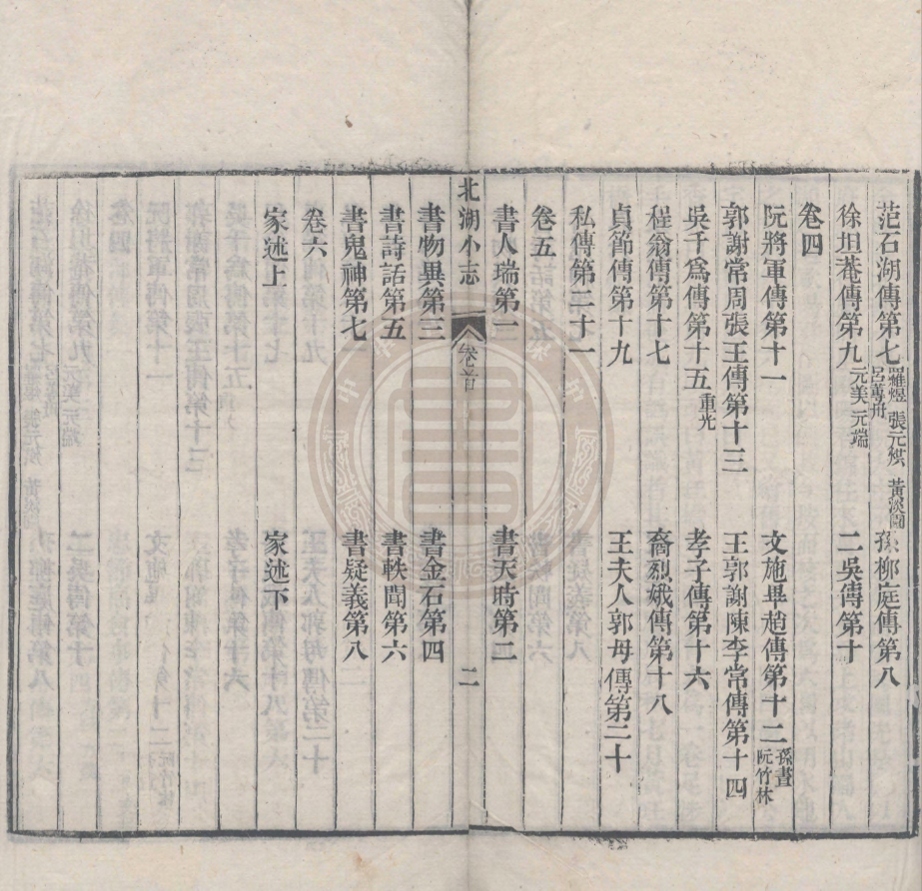 范石湖傳第七 羅煜 張元 黃淡園 呂萬卅 孫柳庭傳第八
徐坦菴傳第九 元美 元端 二吳傳第十
卷四
阮將軍傳第十一 文施畢趙傳第十二 孫晝 阮竹林
郭謝常周張王傳第十三 王郭謝陳李常傳第十四
吳千爲傳第十五 重光 孝子傳第十六
程翁傳第十七 裔烈娥傳第十八
貞節傳第十九 王夫人郭母傳第二十
私傳第二十一
卷五
書人瑞第一 書天時第二
北湖小志 卷首 二
書物異第三 書金石第四
書詩話第五 書軼聞第六
書鬼神第七 書疑義第八
卷六
家述上 家述下